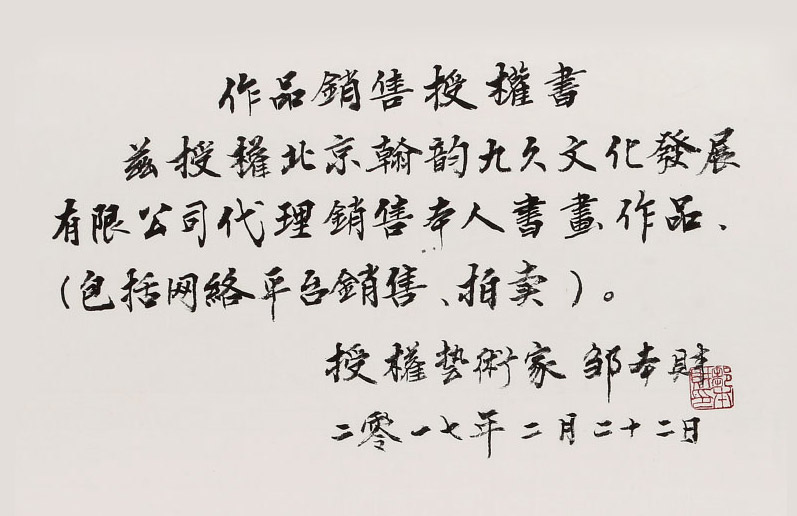 作品銷售授權書
兹授權北京翰韵九久文化發展
有限公司代理銷售本人書畫作品、
(包括网絡平台銷售、拍卖)。
授權藝術家 邹本財
二零一七年二月二十二日